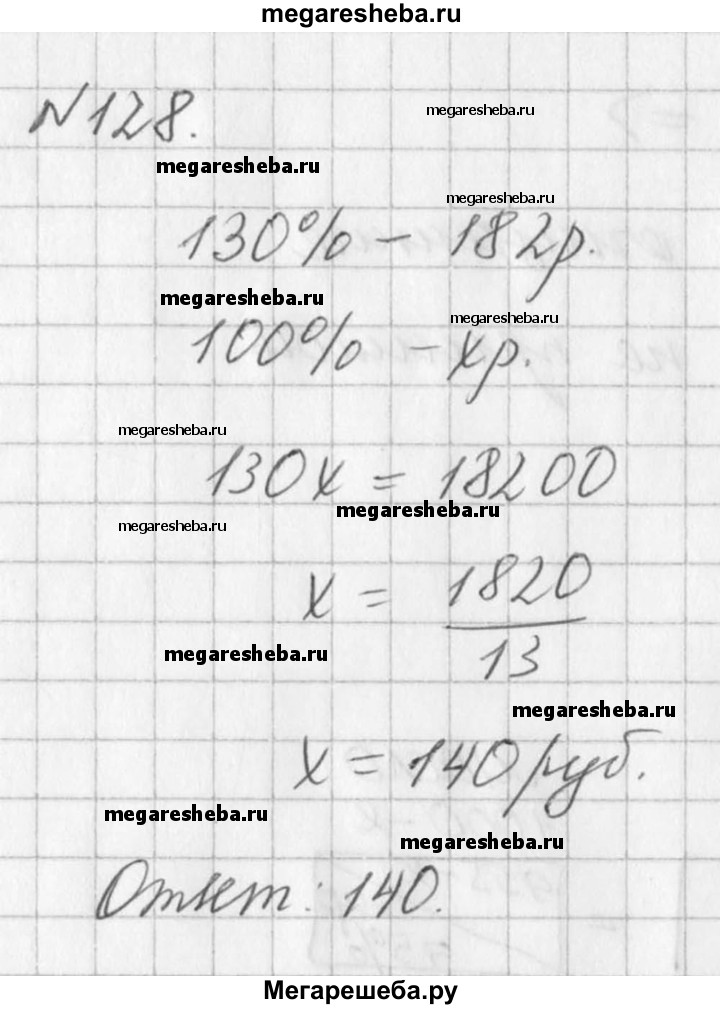 megaresheba.ru
№128.
megaresheba.ru
megaresheba.ru
megaresheba.ru
130% – 182р.
megaresheba.ru
megaresheba.ru
100% – хр.
megaresheba.ru
130х = 18200
megaresheba.ru
megaresheba.ru
х = 1820
13
megaresheba.ru
megaresheba.ru
х = 140 руб.
megaresheba.ru
megaresheba.ru
Ответ: 140.
Мегарешеба.ру